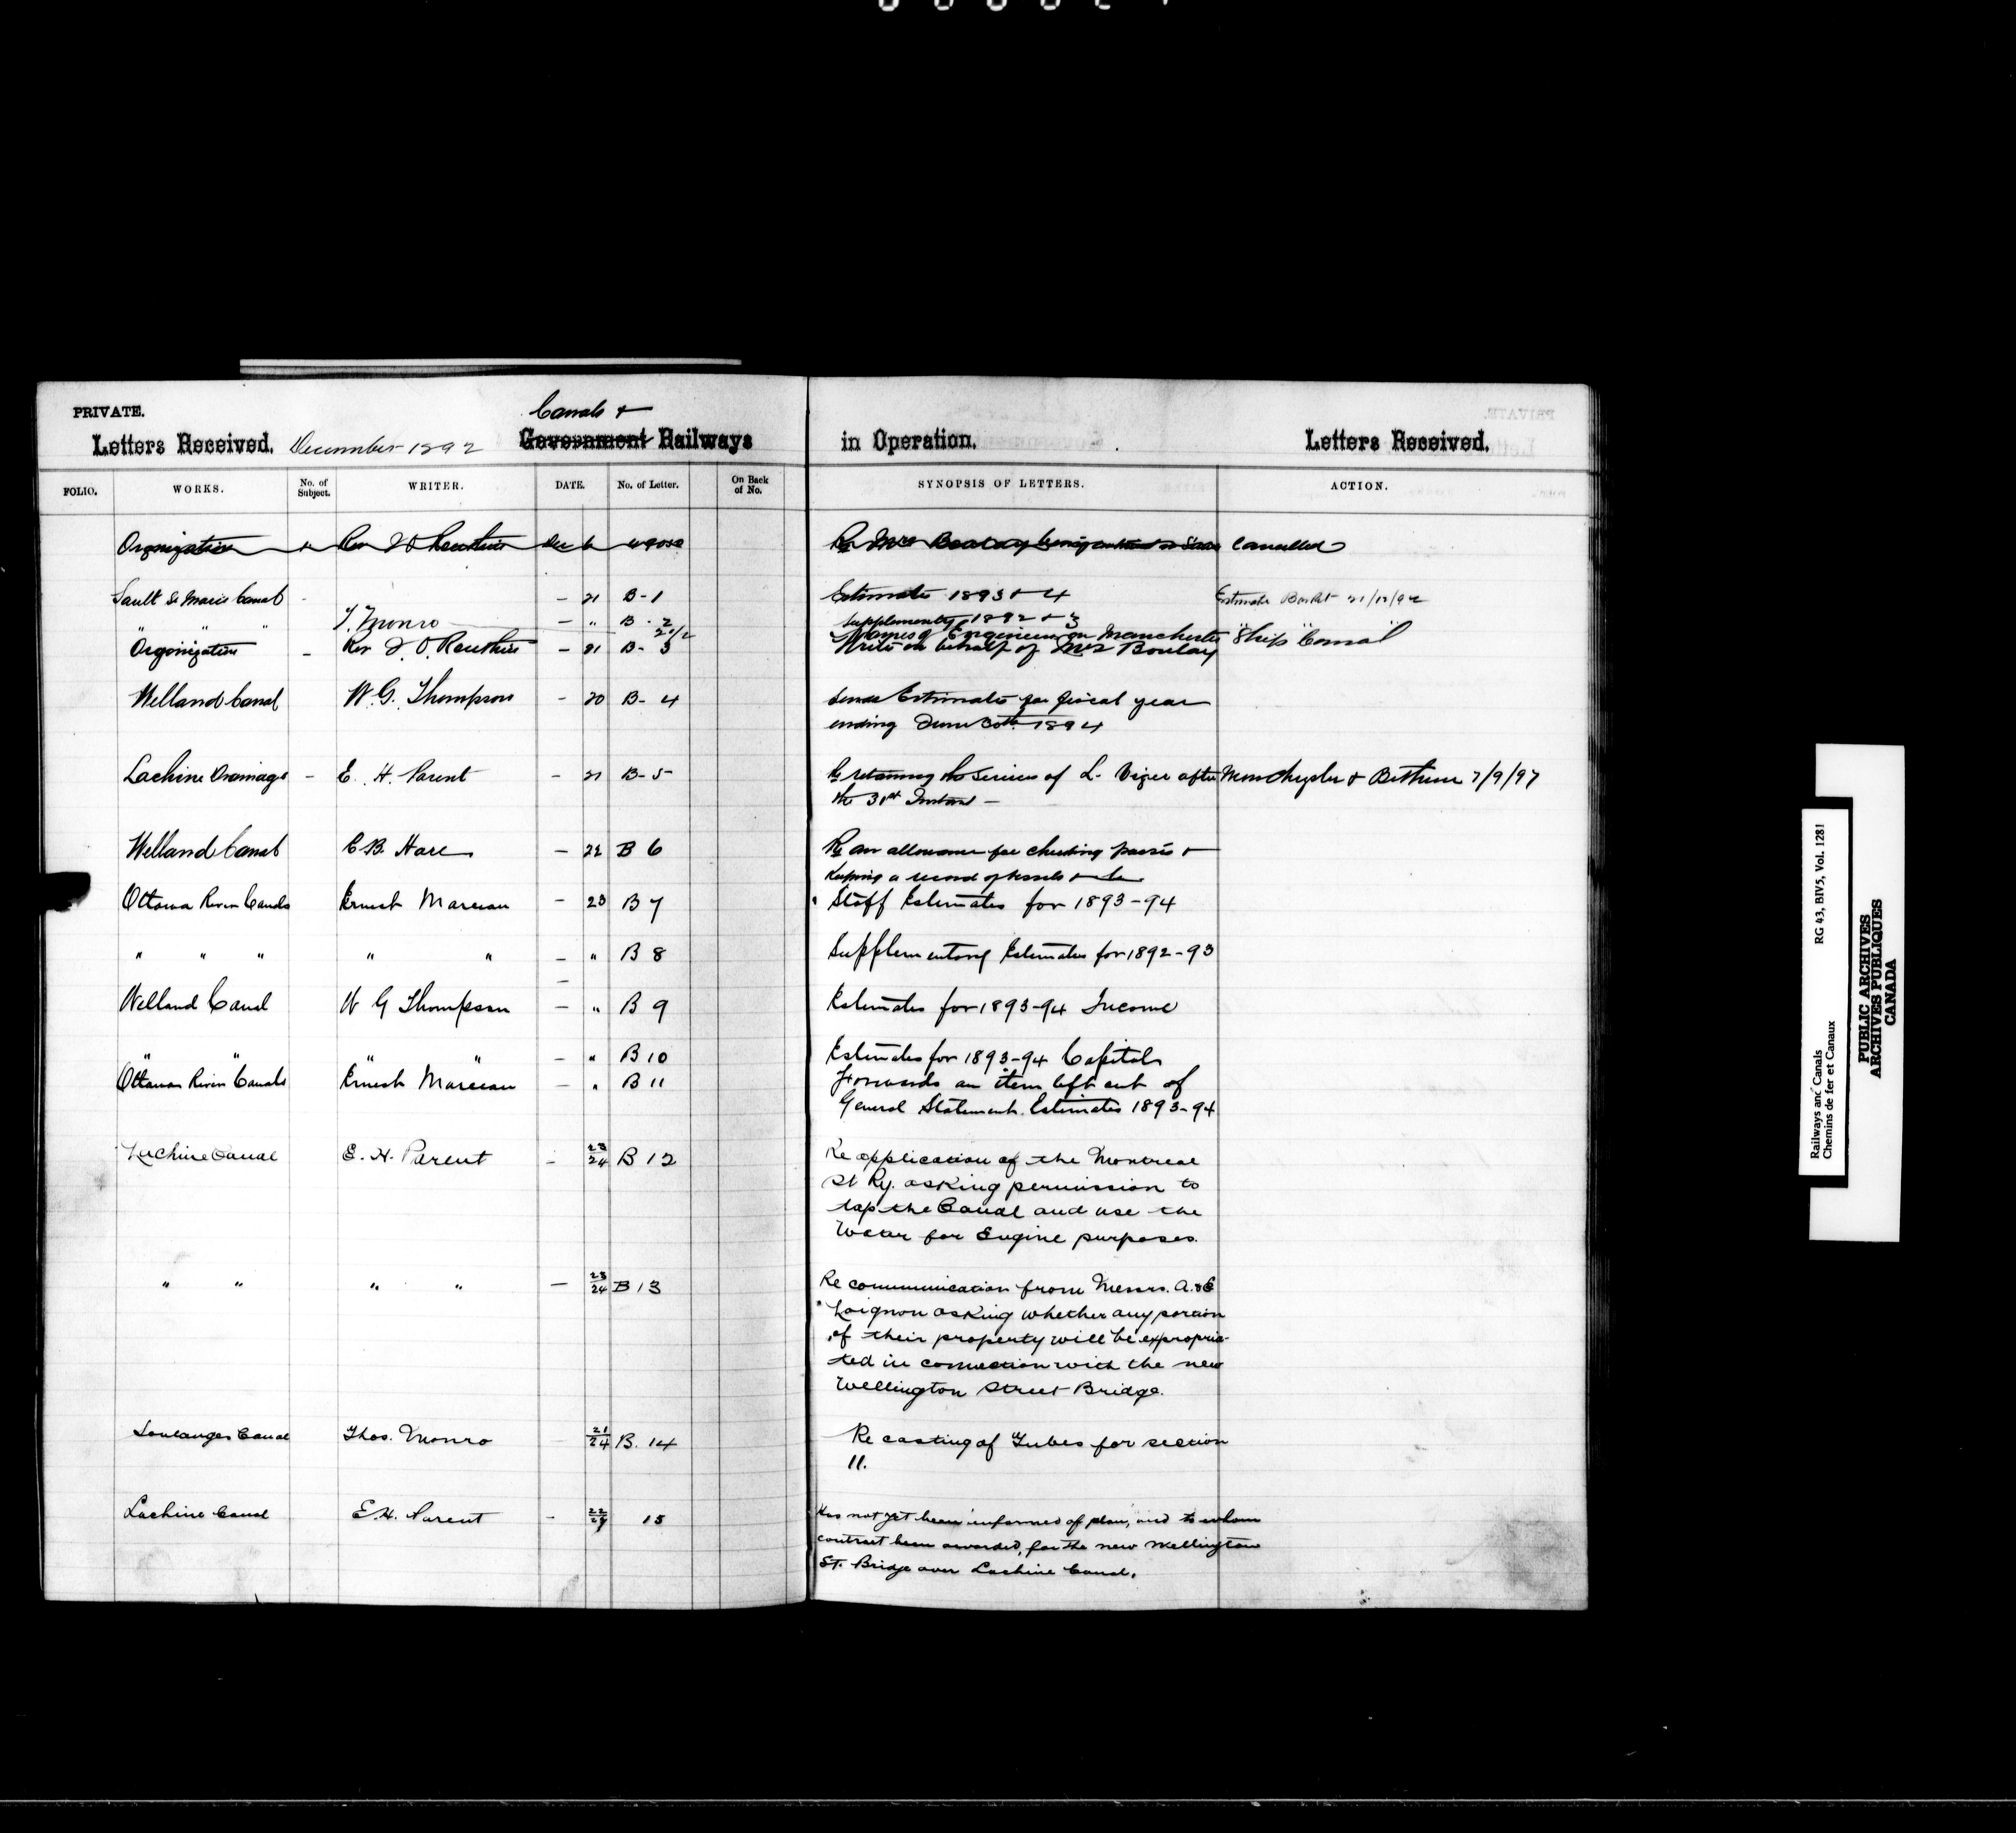 PRIVATE.
Canals &
Letters Received. December 1892 Government Railways in Operation. Letters Received.
FOLIO. WORKS. No. of Subject. WRITER. DATE. No. of Letter. On Back of No. SYNOPSIS OF LETTERS. ACTION.
Organization Rev Dec 6 Re Mrs Boulay Cancelled
Sault Ste Marie Canal - - 21 B-1 Estimates 1893 & 4 Estimate 21/12/92
" " " - " B-2 Supplementary 1892 & 3
T. Monro 2 1/2 Names of Engineers on Manchester "Ship Canal"
Organization - Rev J. O. Routhier - 21 B-3 Write on behalf of Mrs Boulay
Welland Canal W. G. Thompson - 20 B-4 Sends Estimates for fiscal year
ending June 30th 1894
Lachine Drainage - E. H. Parent - 21 B-5 Re retaining the services of L. Viger after Memo Chrysler & Bethune 7/9/97
the 31st Instant -
Welland Canal C B. Hare - 22 B 6 Re an allowance for checking passes &
keeping a record of vessels &c
Ottawa River Canals Ernest Marceau - 23 B 7 Staff Estimates for 1893-94
" " " " " - " B 8 Supplementary Estimates for 1892-93
Welland Canal W G Thompson - " B 9 Estimates for 1893-94 Income
" " " " - " B 10 Estimates for 1893-94 Capital
Ottawa River Canals Ernest Marceau - " B 11 Forwards an item left out of
General Statement Estimates 1893-94
Lachine Canal E. H. Parent - 23/24 B 12 Re application of the Montreal
St Ry. asking permission to
tap the Canal and use the
Water for Engine purposes.
" " " " - 23/24 B 13 Re communication from Messrs. A. & E
Loignon asking whether any portion
of their property will be expropria-
ted in connection with the new
Wellington Street Bridge.
Soulanges Canal Thos. Monro 21/24 B. 14 Re casting of Tubes for section
11.
Lachine Canal E. H. Parent - 15 Has not yet been informed of plan, and to whom
contract been awarded, for the new Wellington
St. Bridge over Lachine Canal.
Railways and Canals RG 43, BIV5, Vol. 1281
Chemins de fer et Canaux
PUBLIC ARCHIVES
ARCHIVES PUBLIQUES
CANADA